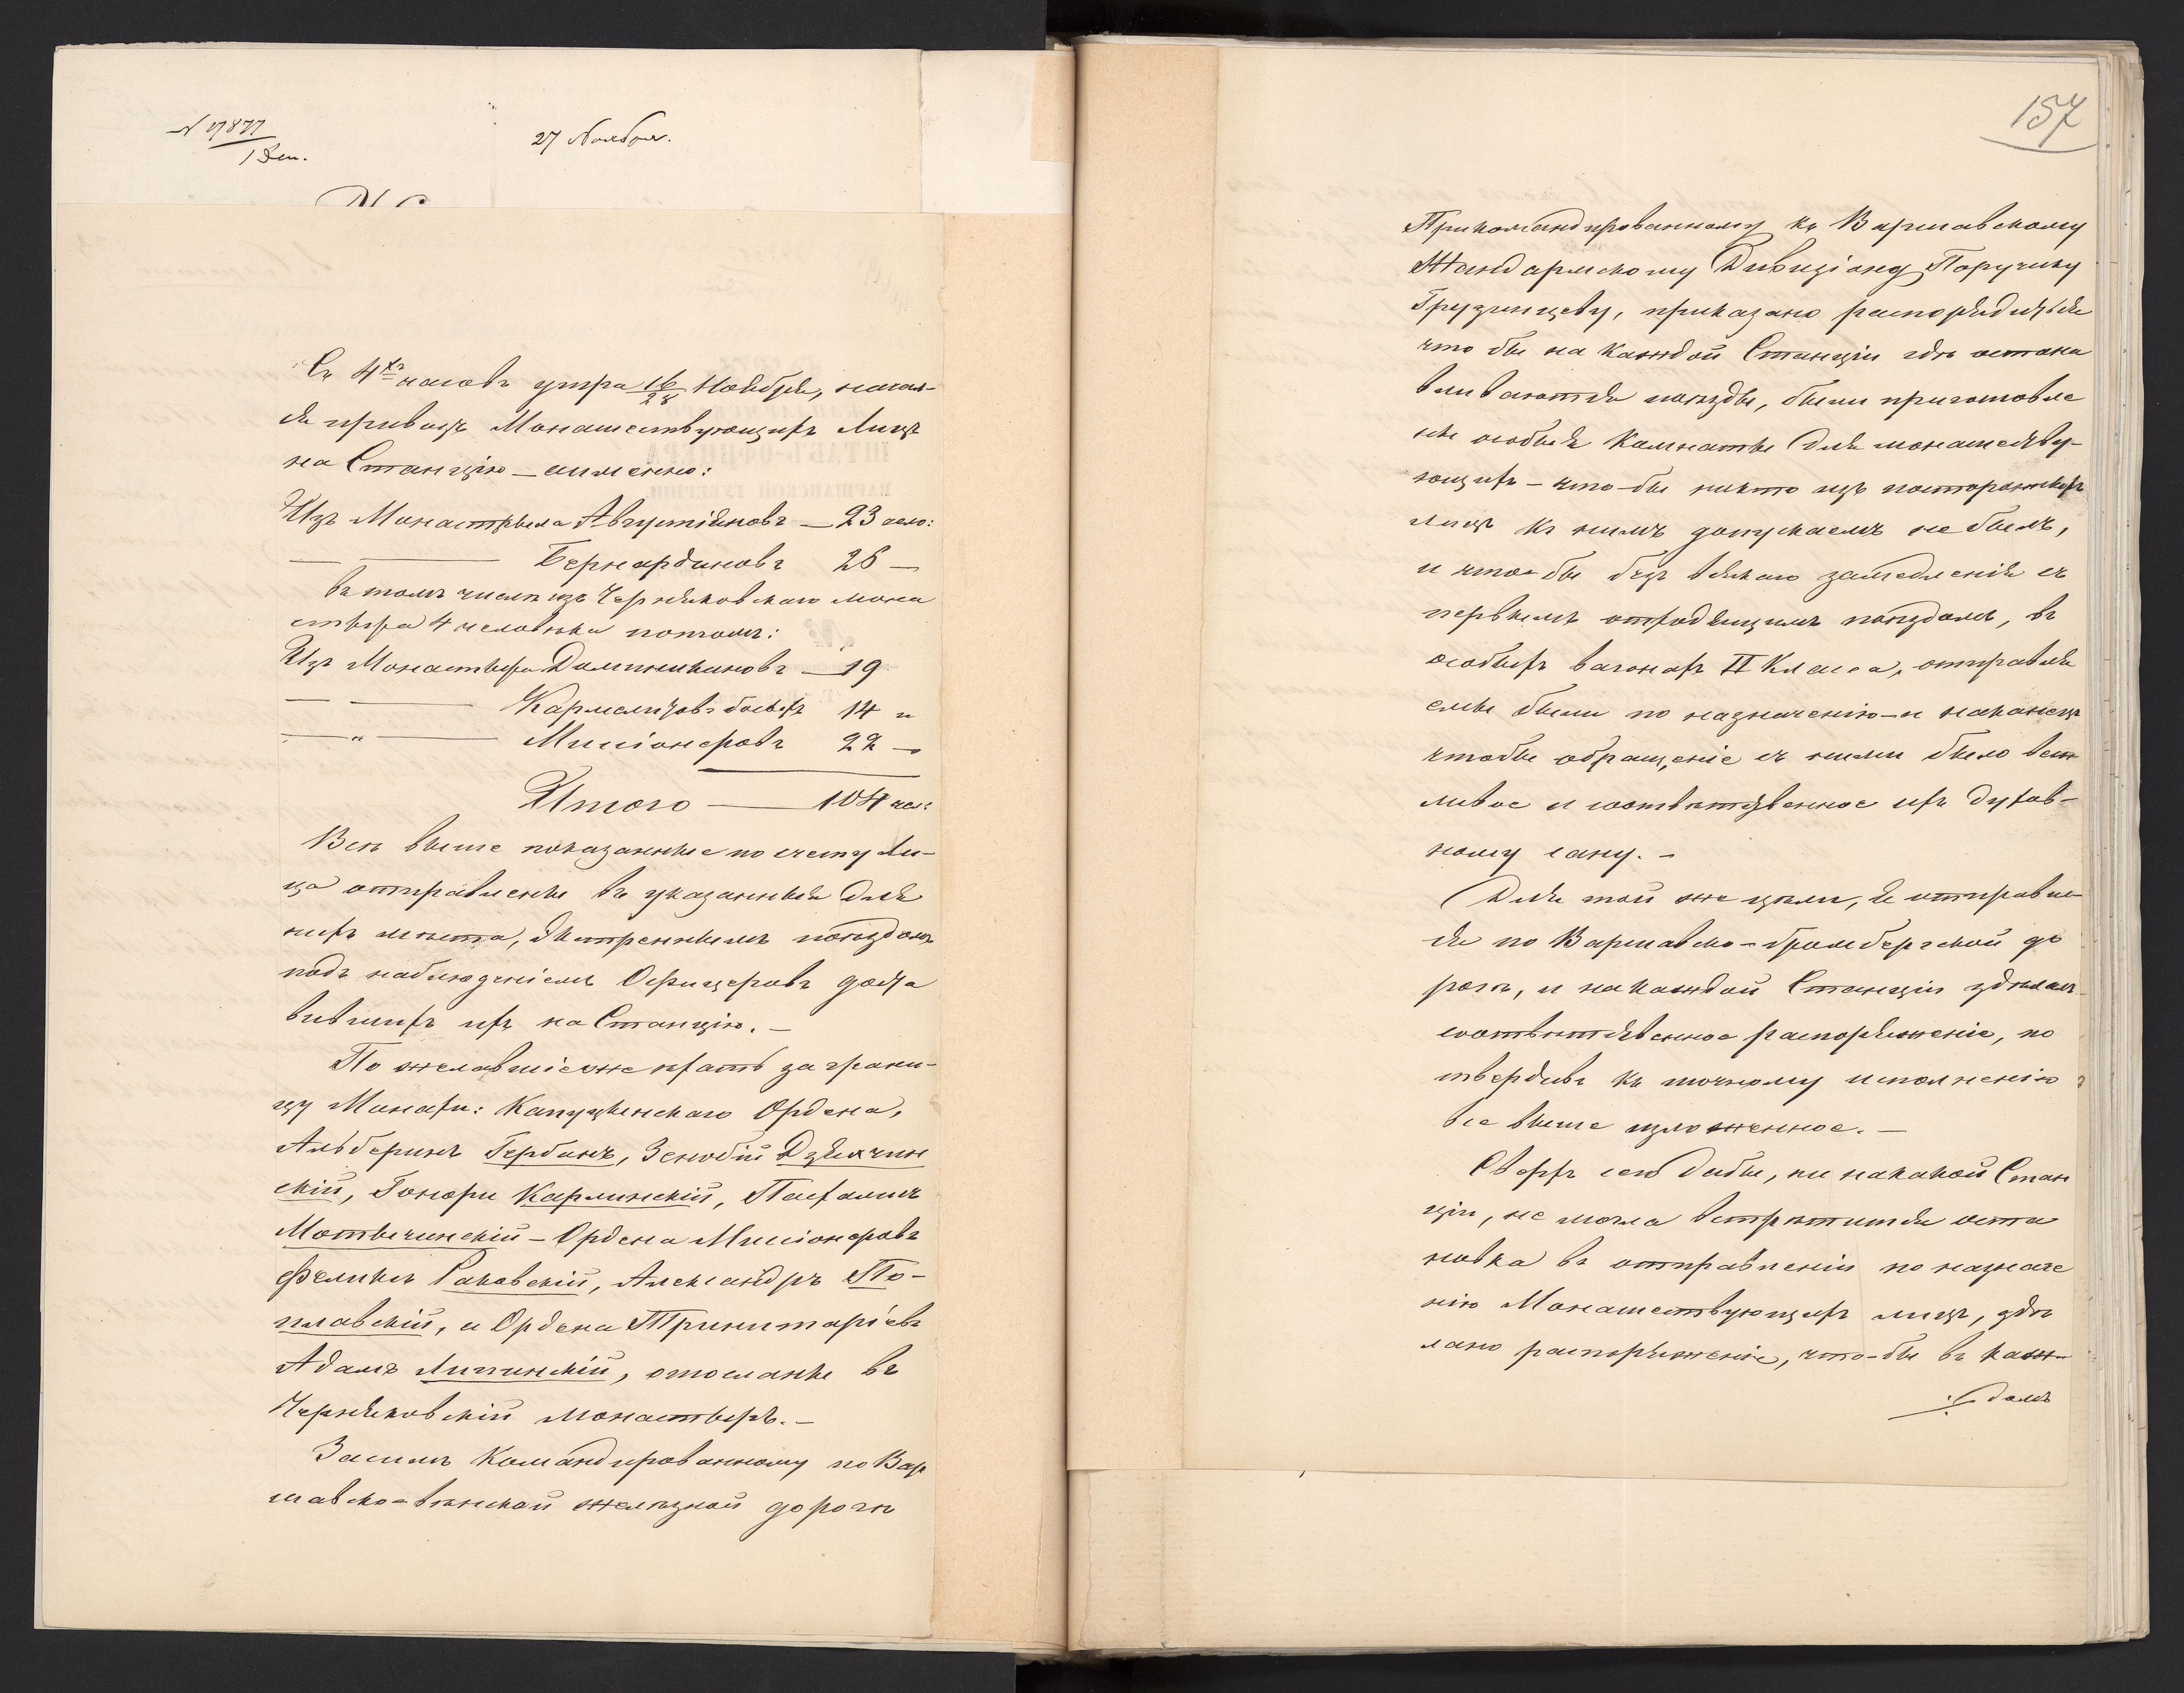 N 17877
1 Ден.
27 Ноября.
Съ 4хъ часовъ утра 16/28 Ноября, начал-
ся привозъ Монашествующихъ Лицъ
на Станцію – аименно:
Изъ Монастырьла Августіяновъ — 23 чело:
— — Бернардиновъ 26 —
въ томъ числѣ изъ Черняковскаго мона
стыря 4 человѣка потомъ:
Изъ Монастыря Доминикановъ — 19
— — Кармелитовъ босыхъ 14 "
— " — Миссіонеровъ 22 —
Итого — 104 чел:
Всѣ выше показанные по счету Ли-
ца отправлены въ указанныя для
нихъ мѣста, экстреннымъ поѣздомъ
подъ наблюденіемъ Офицеровъ доста
вившихъ ихъ на Станцію. –
По желавшіеже ѣхать за грани-
цу Монахи: Капуцынскаго Ордена,
Альберикъ Гербикъ, Зенобій Дзялчин
скій, Гонори Карлинскій, Пасхалисъ
Мотычинскій – Ордена Миссіонеровъ
Феликсъ Раковскій, Александръ По-
плавскій, и Ордена Тринитаріевъ
Адамъ Липинскій, отосланы въ
Черняковскій Монастырь. –
Засимъ Командированному по Вар
шавско-вѣнской желѣзной дорогѣ
157
Прикомандированному къ Варшавскому
Жандармскому Дивизіону Поручику
Грузинцеву, приказано распорядиться
что бы на каждой Станціи гдѣ остана
вливаются поѣзды, были приготовле
ны особыя Комнаты для монашеству-
ющихъ – что-бы никто изъ постороннихъ
лицъ къ нимъ допускаемъ не былъ,
и что-бы безъ всякаго замедленія съ
первымъ отходящимъ поѣздомъ, въ
особыхъ вагонахъ II Класса, отправля
емы были по назначенію – и наконецъ
чтобы обращеніе съ ними было вѣж
ливое и соотвѣтственное ихъ духов-
ному сану. –
Для той же цѣли, я отправил-
ся по Варшавско-бромбергской до
рогѣ, и на каждой Станціи здѣлалъ
соотвѣтственное распоряженіе, по
твердивъ къ точному исполненію
все выше изложенное. –
Сверхъ сего дабы, ни накакой Стан
ціи, не могла встрѣтиться оста
новка въ отправленіи по назначе
нію Монашествующихъ лицъ, здѣ
лано распоряженіе, что-бы въ каж-
домъ